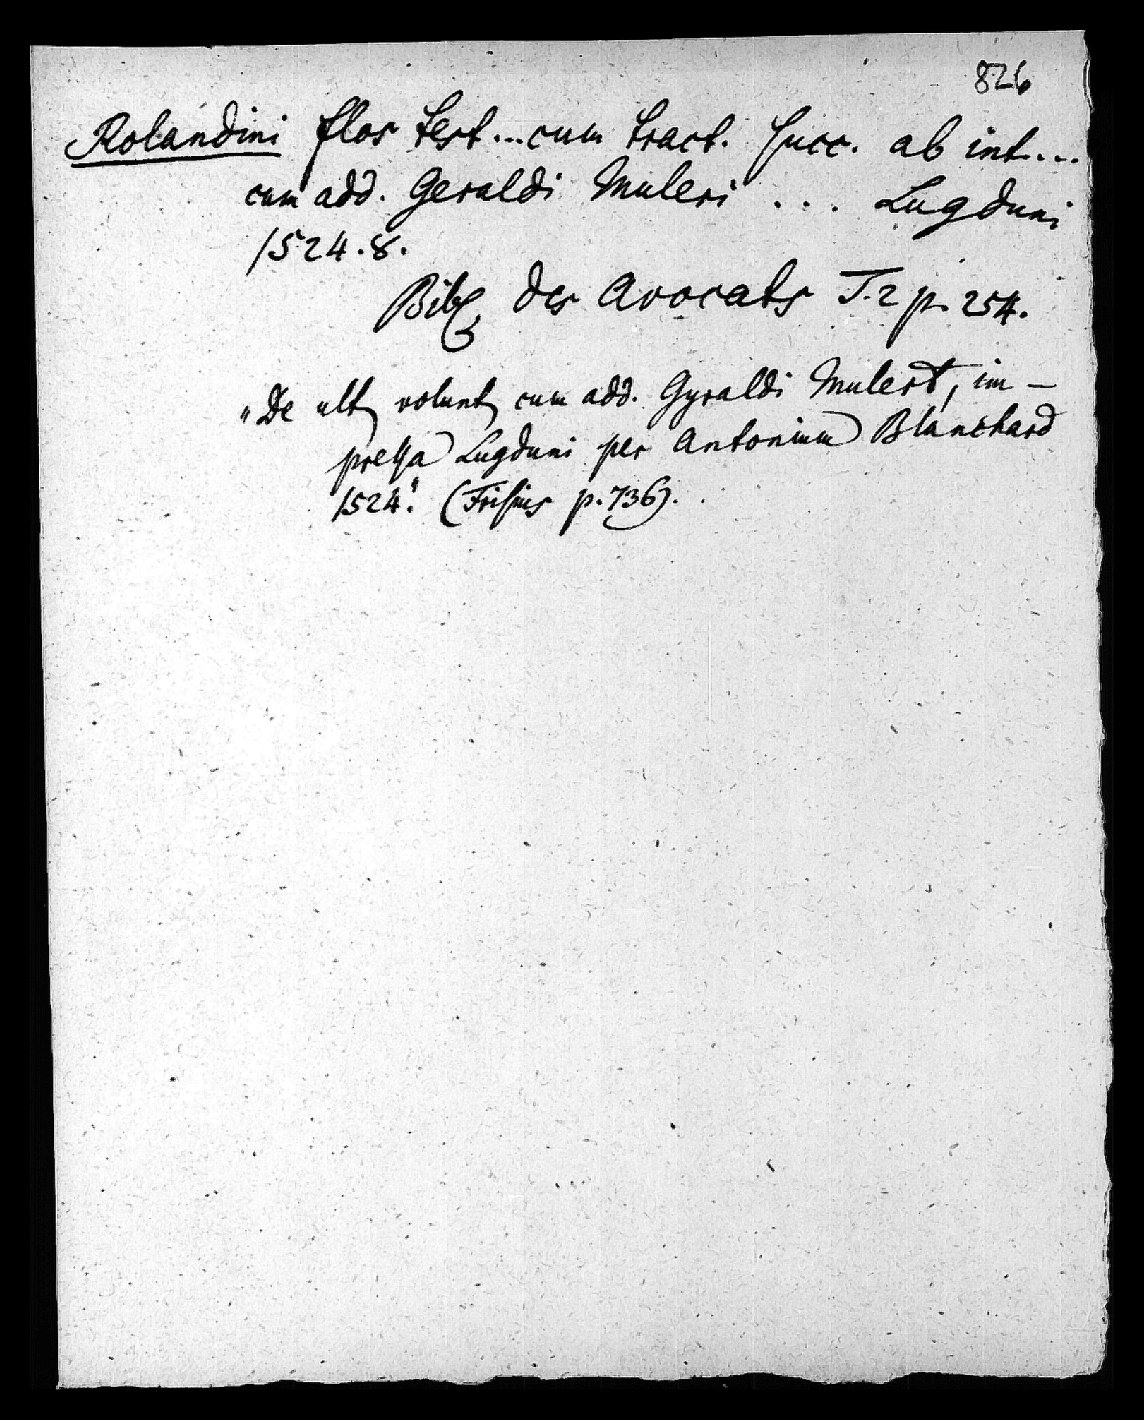 826
Rolandini flos test... cum tract. succ. ab int....
cum add. Geraldi Muleri . . . Lugduni
1524.8.
Bibl. des Avocats T.2 p. 254.
„De ult. volunt. cum add. Gyraldi Mulert, im-
pressa Lugduni per Antonium Blanchard
1524." (Frisius p. 736).